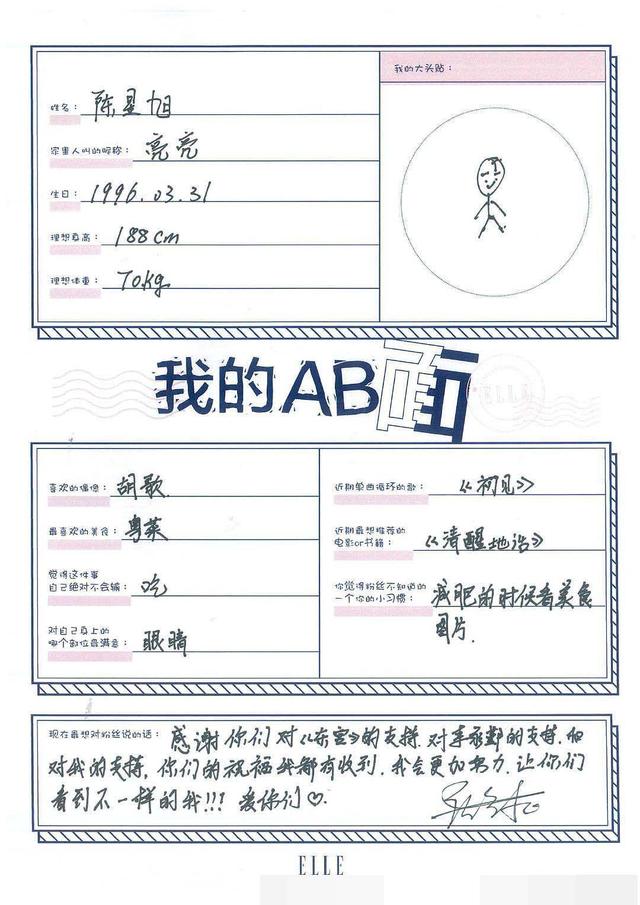 姓名：陈星旭
家里人叫的昵称：亮亮
生日：1996.03.31
理想身高：188cm
理想体重：70kg
我的大头贴：
我的AB面
ELLE
喜欢的偶像：胡歌
最喜欢的美食：粤菜
觉得这件事
自己绝对不会输：吃
对自己身上的
哪个部位最满意：眼睛
近期单曲循环的歌：《初见》
近期最想推荐的
电影or书籍：《清醒地活》
你觉得粉丝不知道的
一个你的小习惯：减肥的时候看美食
图片.
现在最想对粉丝说的话：感谢你们对《东宫》的支持.对李承鄞的支持.和
对我的支持,你们的祝福我都有收到.我会更加努力.让你们
看到不一样的我!!!爱你们♡.
ELLE